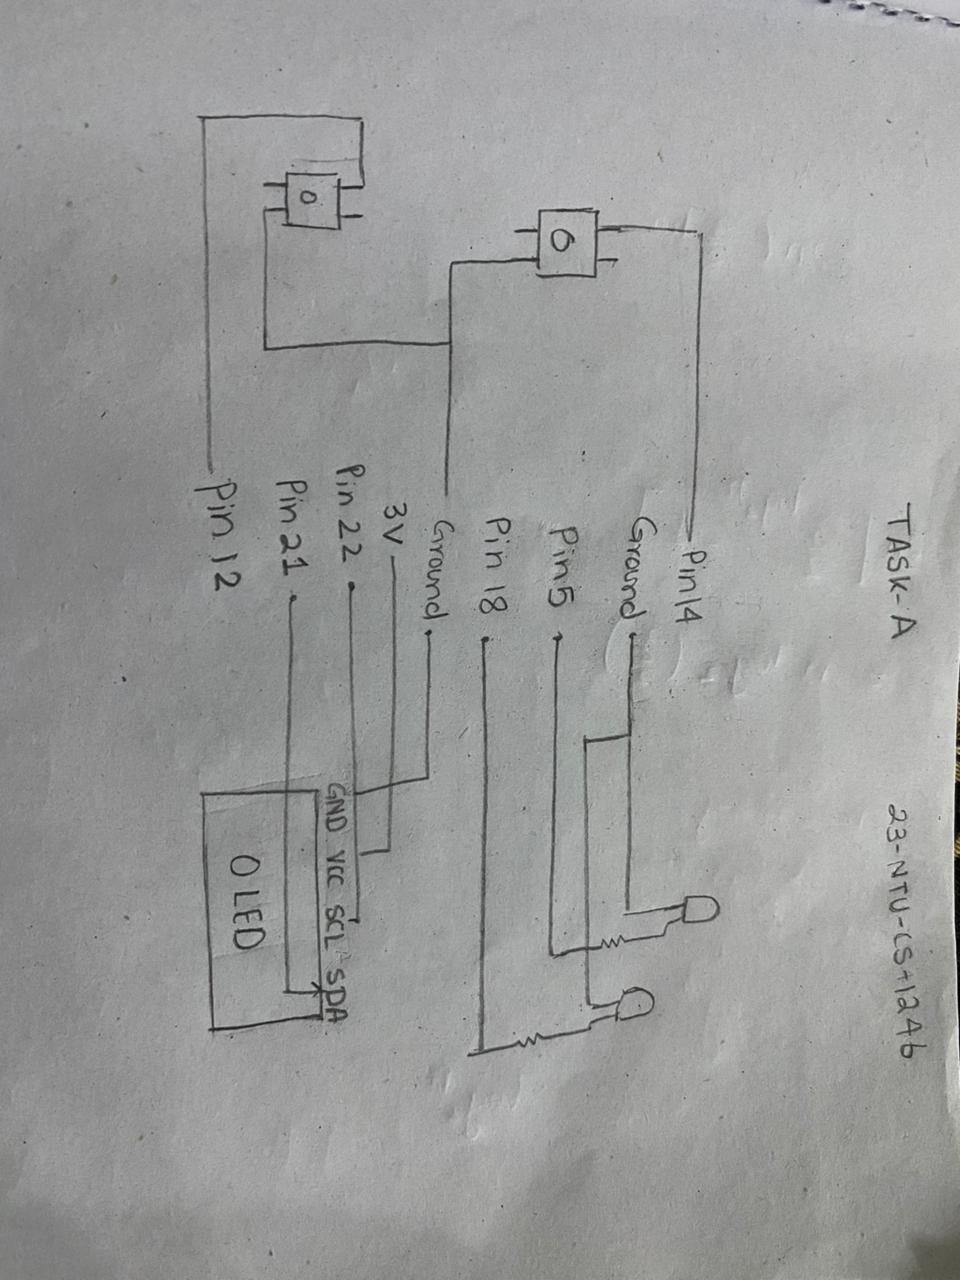 TASK-A
23-NTU-CS-1246
Pin14
Ground
Pin5
Pin 18
Ground
3V
Pin 22
Pin 21
Pin 12
GND VCC SCL SDA
OLED